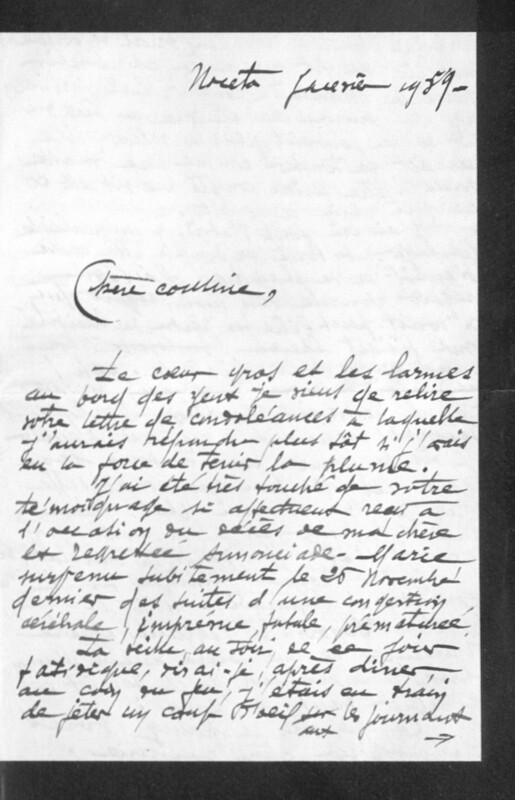 Noceta Janvier 1959-
Chère cousine,
Le cœur gros et les larmes
au bord des yeux je viens de relire
votre lettre de condoléances à laquelle
j'aurais répondu plus tôt si j'avais
eu la force de tenir la plume.
J'ai été très touché de votre
témoignage si affectueux reçu à
l'occasion du décès de ma chère
et regrettée Annonciade-Marie
survenu subitement le 25 Novembre
dernier des suites d'une congestion
cérébrale, imprévue, fatale, prématurée.
La veille, au soir, de ce jour
fatidique, dirai-je, après dîner,
au coin du feu, j'étais en train
de jeter un coup d'oeil sur les journaux
→